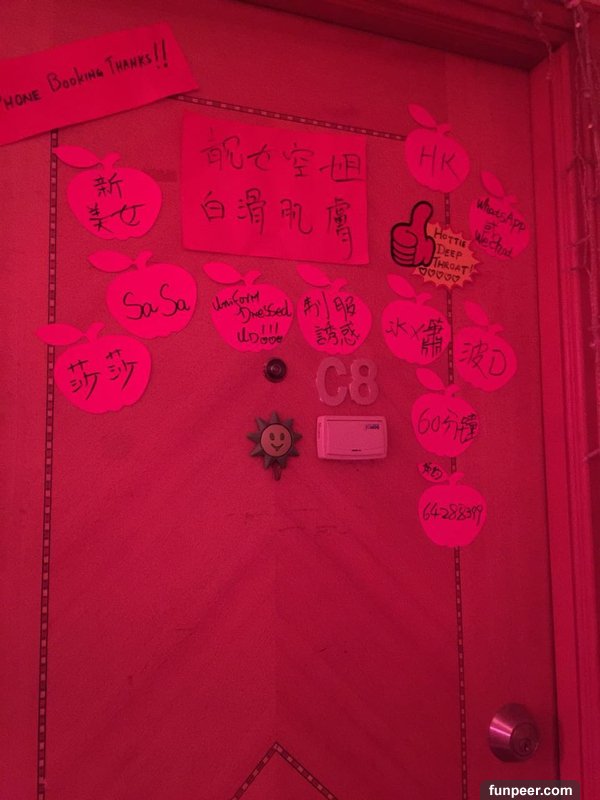 PHONE BOOKING THANKS!!
靚女空姐
白滑肌膚
HK
新
美女
WhatsApp
or
WeChat
HOTTIE
DEEP
THROAT!
SaSa
Uniform
Dressed
制服
誘惑
冰X簫
莎莎
波D
C8
60分鐘
64288399
funpeer.com